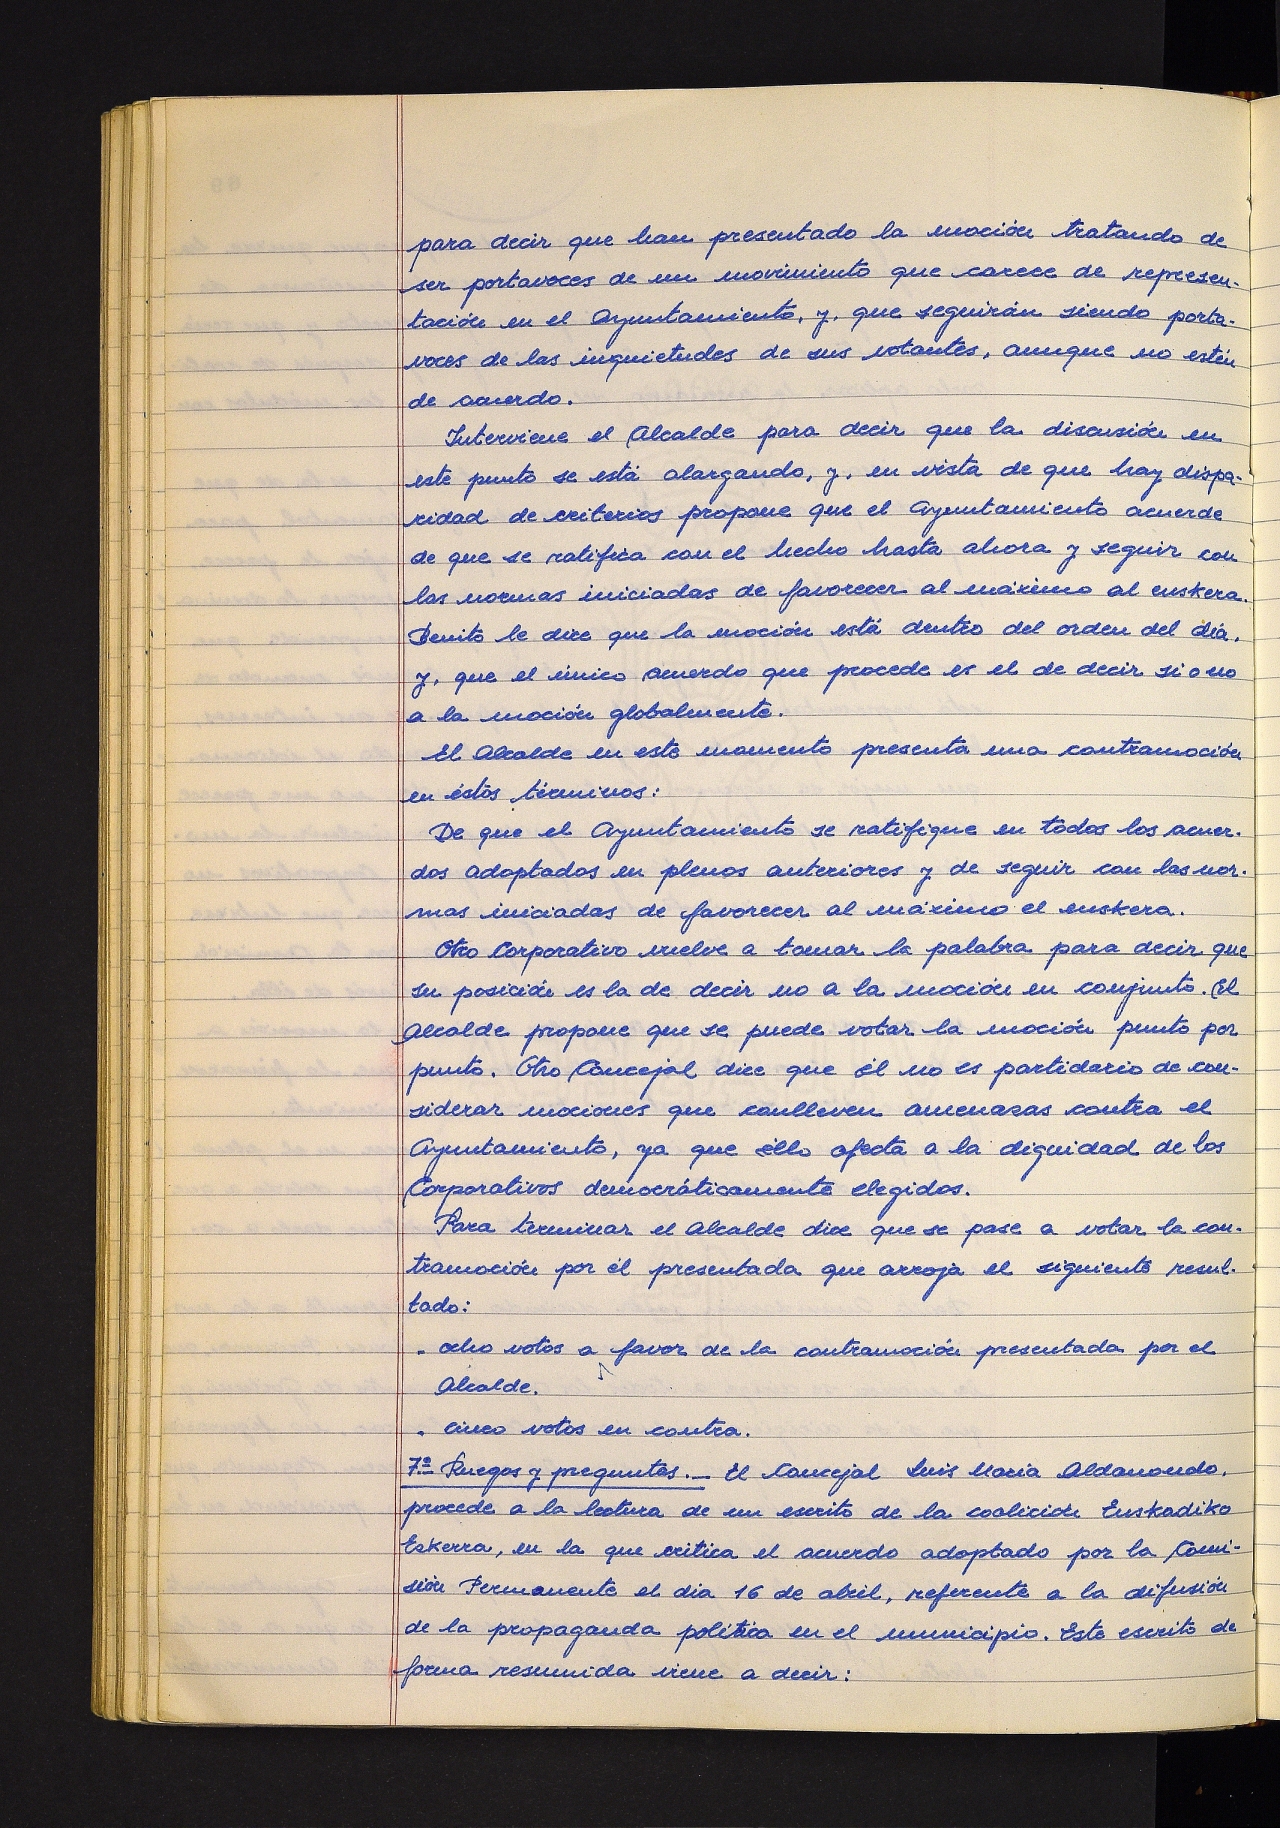 para decir que han presentado la moción tratando de
ser portavoces de un movimiento que carece de represen-
tación en el Ayuntamiento, y, que seguirán siendo porta-
voces de las inquietudes de sus votantes, aunque no estén
de acuerdo.
Interviene el Alcalde para decir que la discusión en
este punto se está alargando, y, en vista de que hay dispa-
ridad de criterios propone que el Ayuntamiento acuerde
de que se ratifica con el hecho hasta ahora y seguir con
las normas iniciadas de favorecer al máximo al euskera.
Benito le dice que la moción está dentro del orden del día,
y, que el único acuerdo que procede es el de decir si o no
a la moción globalmente.
El Alcalde en este momento presenta una contramoción
en éstos términos:
De que el Ayuntamiento se ratifique en todos los acuer-
dos adoptados en plenos anteriores y de seguir con las nor-
mas iniciadas de favorecer al máximo el euskera.
Otro Corporativo vuelve a tomar la palabra para decir que
su posición es la de decir no a la moción en conjunto. El
Alcalde propone que se puede votar la moción punto por
punto. Otro Concejal dice que él no es partidario de con-
siderar mociones que conlleven amenazas contra el
Ayuntamiento, ya que éllo afecta a la dignidad de los
Corporativos democráticamente elegidos.
Para terminar el Alcalde dice que se pase a votar la con-
tramoción por él presentada que arroja el siguiente resul-
tado:
- ocho votos a favor de la contramoción presentada por el
Alcalde.
- cinco votos en contra.
7º Ruegos y preguntas.- El Concejal Luis Maria Aldanondo,
procede a la lectura de un escrito de la coalición Euskadiko
Eskerra, en la que critica el acuerdo adoptado por la Comi-
sión Permanente el dia 16 de abril, referente a la difusión
de la propaganda política en el municipio. Este escrito de
forma resumida viene a decir: